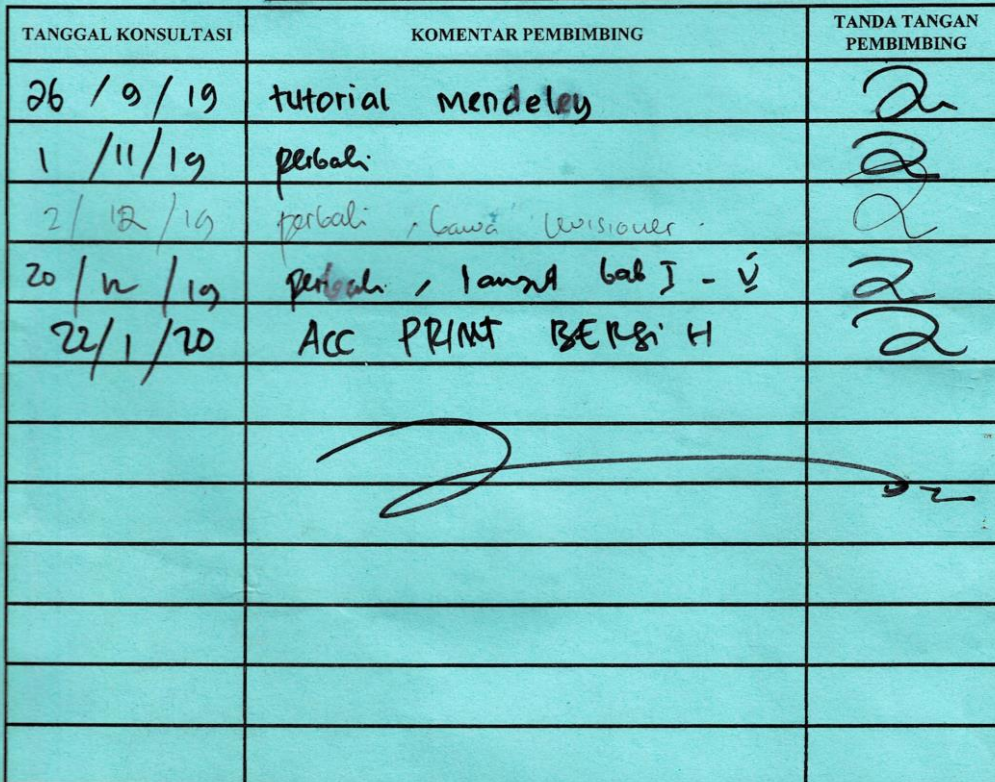 TANGGAL KONSULTASI KOMENTAR PEMBIMBING TANDA TANGAN PEMBIMBING
26 / 9 / 19 tutorial Mendeley
1 / 11 / 19 perbaki
2 / 12 / 19 perbaki , bawa
20 / 12 / 19 , lanjut bab I - V
22 / 1 / 20 ACC PRINT BERSIH